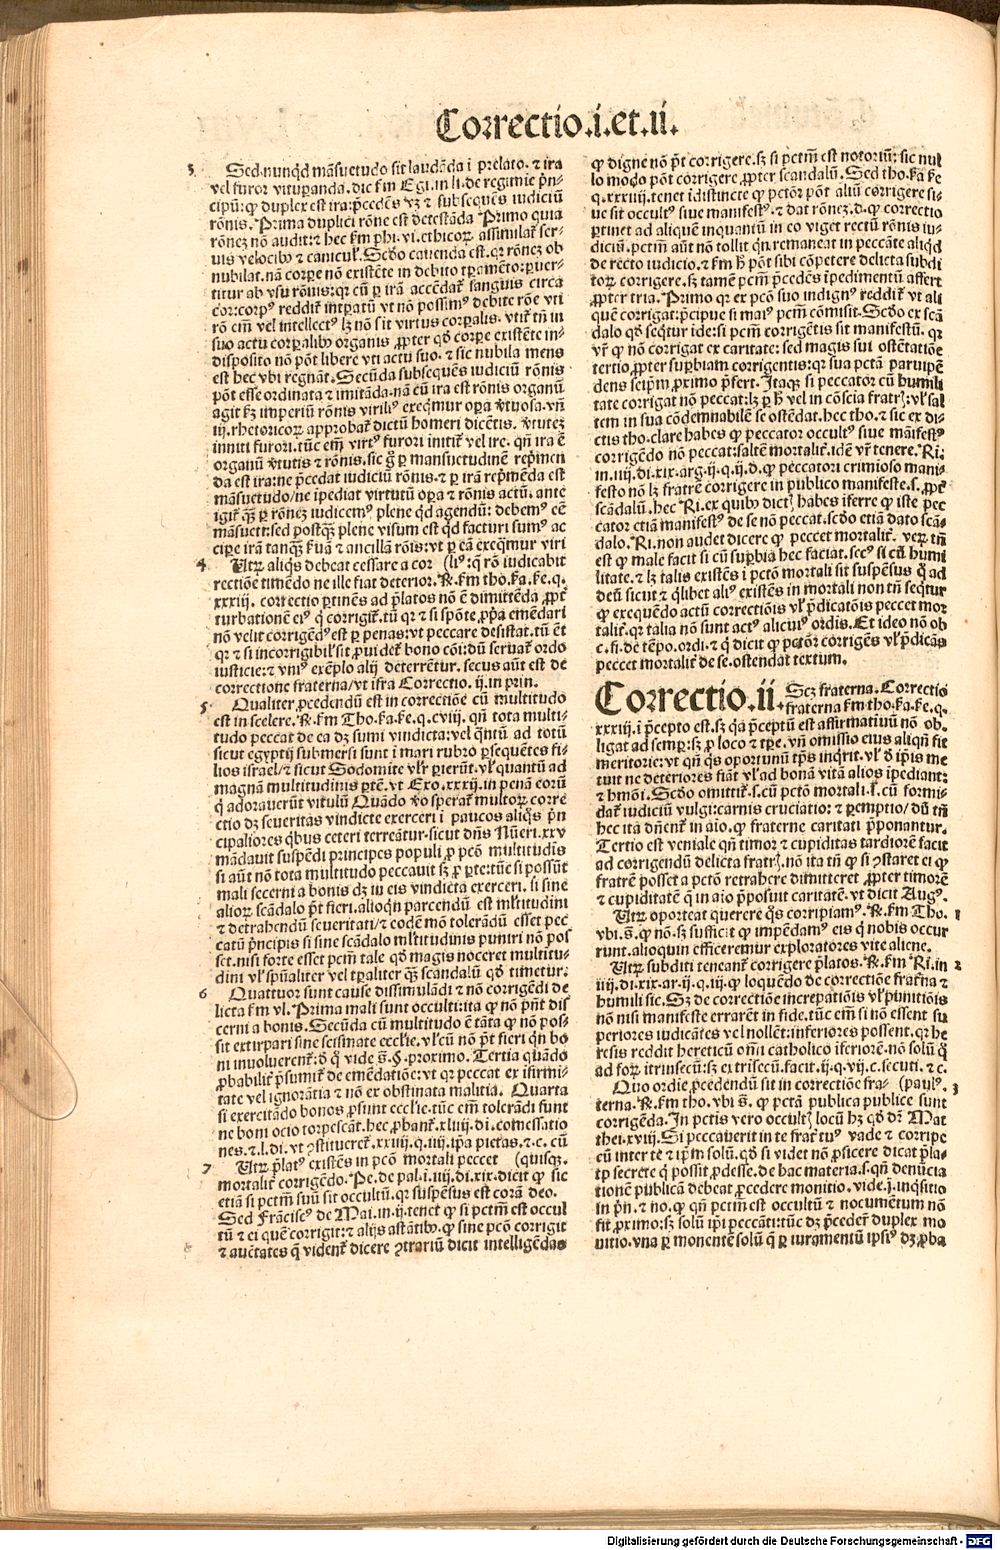 Correctio.i.et.ii.
3
Sed nunqͥd māsuetudo sit laudēda ī prelato. ⁊ ira
vel furor vituꝑanda. dic fm Egi. in li. de regimie pͥn-
cipū: ꝙ duplex est ira: p̄cedēs vꝫ ⁊ subsequēs iudiciū
rōnis. Prima duplici rōne est detestāda Primo quia
rōneꝫ nō audit: ⁊ hec fm phi. vi. ethicoꝝ. assimilaͭ ser-
uis velocibꝰ ⁊ caniculꝭ. Scd̓o cauenda est. qꝛ rōneꝫ ob
nubilat. nā corpe nō existēte in debito tꝑamēto: ꝑuer-
titur ab vsu rōnis: qꝛ cū ꝑ irā accēdaͭ sanguis circa
cor: corpꝰ reddiͭ intꝑatū vt nō possimꝰ debite rōe vti
rō em̄ vel intellectꝰ lꝫ nō sit virtus corꝑalis. vtiͭ tn̄ in
suo actu corꝑalibꝰ organis ꝓpter qd̓ corpe existēte in-
disposito nō pōt libere vti actu suo. ⁊ sic nubila mens
est hec vbi regnāt. Secūda subsequēs iudiciū rōnis
pōt esse ordinata ⁊ imitāda. nā cū ira est rōnis organū
agit fꝫ imperiū rōnis viriliꝰ exeqͥmur oꝑa v̓tuosa. vn̄
iij. rhetoricoꝝ approbaͭ dictū homeri dicētis. v̓tuteꝫ
inniti furori. tūc em̄ virtꝰ furori initiͭ vel ire. qn̄ ira ē
organū v̓tutis ⁊ rōnis. sic g̊ ꝑ mansuetudinē rep̄men
da est ira: ne p̄cedat iudiciū rōnis. ⁊ ꝑ irā rep̄mēda est
māsuetudo/ne īpediat virtutū oꝑa ⁊ rōnis actū. ante
igiͭ qͣꝫ ꝑ rōneꝫ iudicemꝰ plene qͥd agendū: debemꝰ eē
māsueti: sed postqͣꝫ plene visum est qͥd facturi sumꝰ ac
cipe irā tanqͣꝫ fuā ⁊ ancillā rōis: vt ꝑ eā exeqͥmur viri
4
Vtrꝫ aliqͥs debeat cessare a cor (liꝰ: qͥ rō iudicabit
rectiōne timēdo ne ille fiat deterior. ℟. fm tho. ẜa. ẜe. q.
xxxiij. correctio ꝑtinēs ad p̄latos nō ē dimittēda ꝓpͭ
turbationē eiꝰ qͥ corrigiͭ. tū qꝛ ⁊ si spōte ꝓpͥa emēdari
nō velit corrigēdꝰ est ꝑ penas: vt peccare desistat. tū ēt
qꝛ ⁊ si incorrigibilꝭ sit ꝓuideͭ bono cōi: dū seruaͭ ordo
iusticie: ⁊ vniꝰ exēplo alij deterrētur. secus aūt est de
correctione fraterna/vt ifra Correctio. ij. in prin.
5
Qualiter ꝓcedendū est in correctiōe cū multitudo
est in scelere. ℟. fm Tho. ẜa. ẜe. q. cviij. qn̄ tota multi-
tudo peccat de ea dꝫ sumi vindicta: vel qͣntū ad totū
sicut egyptij submersi sunt ī mari rubro ꝑsequētes fi-
lios israel/⁊ sicut Sodomite vlͬ ꝑierūt. vlͬ quantū ad
magnā multitudinis ꝑtē. vt Exo. xxxij. in penā eorū
qͥ adorauerūt vitulū Quādo v̓o speraͭ multoꝝ corre
ctio dꝫ seueritas vindicte exerceri ī paucos aliqͥs pͥn
cipaliores qͥbus ceteri terreātur. sicut dn̄s Nūeri. xxv
mādauit suspēdi principes populi ꝓ pcō multitudīs
si aūt nō tota multitudo peccauit sꝫ ꝓ ꝑte: tūc si possūt
mali secerni a bonis dꝫ in eis vindicta exerceri. si sine
alioꝝ scādalo pͭ fieri. alioqͥn parcendū est mltitudini
⁊ detrahendū seueritati/⁊ eodē mō tolerādū esset pec
catū pͥncipis si sine scādalo mltitudinis puniri nō pos
set. nisi forte esset pctm̄ tale qd̓ magis noceret multitu-
dini vlͬ spūaliter vel tꝑaliter qͣꝫ scandalū qd̓ timetur.
6
Quattuor sunt cause dissimulādi ⁊ nō corrigēdi de
licta fm vl. Prima mali sunt occulti: ita ꝙ nō pn̄t dis
cerni a bonis. Secūda cū multitudo ē tāta ꝙ nō pos-
sit extirpari sine scissmate ecclīe. vlͬcū nō pͭ fieri qͥn bo
ni inuoluerent: d̓ qͥ vide s̄. §. proximo. Tertia quādo
ꝓbabiliͭ p̄sumiͭ de emēdatiōe: vt qꝛ peccat ex ifirmi-
tate vel ignorātia ⁊ nō ex obstinata malitia. Quarta
si exercitādo bonos ꝓsunt ecclīe. tūc em̄ tolerādi sunt
ne boni ocio torpescāt. hec ꝓbanͭ. xliij. di. comessatio
nes. ⁊. l. di. vt ↄstitueret. xxiij. q. iiij. ip̄a pietas. ⁊. c. cū
7
Vtrꝫ p̄latꝰ existēs in pcō mortali peccet (quisqꝫ.
mortaliͭ corrigēdo. Pe. de pal. i. iiij. di. xix. dicit ꝙ sic
etiā si pctm̄ suū sit occultū. qꝛ suspēsus est corā deo.
Sed Frāciscꝰ de Mai. in. ij. tenet ꝙ si pctm̄ est occul
tū ⁊ ei quē corrigit: ⁊ alijs astātibꝰ. ꝙ sine pcō corrigit
⁊ auctātes qͥ videnͭ dicere ↄtrariū dicit intelligēdas
ꝙ digne nō pͭ corrigere. sꝫ si pctm̄ est notoriū: sic nul
lo modo pōt corrigere ꝓpter scandalū. Sed tho. ẜa ẜe
q. xxxiij. tenet īdistincte ꝙ pctōꝛ pōt aliū corrigere si-
ue sit occultꝰ siue manifestꝰ. ⁊ dat rōneꝫ. d. ꝙ correctio
ꝑtinet ad aliquē inquantū in eo viget rectū rōnis iu-
diciū. pctm̄ aūt nō tollit qͥn remaneat in peccāte aliqͥd
de recto iudicio. ⁊ fm h̄ pōt sibi cōpetere delicta subdi
toꝝ corrigere. sꝫ tamē pctm̄ p̄cedēs īpedimentū affert
ꝓpter tria. Primo qꝛ ex pcō suo indignꝰ reddiͭ vt ali
quē corrigat: p̄cipue si maiꝰ pctm̄ cōmisit. Scd̓o ex scā
dalo qd̓ seqͥtur ide: si pctm̄ corrigētis sit manifestū. qꝛ
vͬ ꝙ nō corrigat ex caritate: sed magis sui ostētatiōe
tertio ꝓpter suꝑbiam corrigentis: qꝛ sua pctā paruipē
dens seipm̄ ꝓximo p̄fert. Itaqꝫ si peccator cū humili
tate corrigat nō peccat: lꝫ ꝑ h̄ vel in cōscia fratrꝭ: vlͬ sal
tem in sua cōdemnabilē se ostēdat. hec tho. ⁊ sic ex di-
ctis tho. clare habes ꝙ peccator occultꝰ siue māifestꝰ
corrigēdo nō peccat: saltē mortaliͭ. idē vͬ tenere. Ri.
in. iiij. di. xix. arg. ij. q. ij. d. ꝙ peccatori crimioso mani-
festo nō lꝫ fratrē corrigere in publico manifeste. s. ꝓpͭ
scādalū. hec Ri. ex quibꝰ dictꝭ habes iferre ꝙ iste pec
cator etiā manifestꝰ de se nō peccat. scd̓o etiā dato scā-
dalo. Ri. non audet dicere ꝙ peccet mortaliͭ. veꝝ tn̄
est ꝙ male facit si cū suꝑbia hec faciat. secꝰ si cū humi
litate. ⁊ lꝫ talis existēs ī pctō mortali sit suspēsus qͣ ad
deū sicut ⁊ qͥlibet aliꝰ existēs in mortali non tn̄ seqͥtur
ꝙ exequēdo actū correctiōis vlͬ p̄dicatōis peccet mor
taliͭ. qꝛ talia nō sunt actꝰ alicuiꝰ ordis. Et ideo nō ob
c. fi. de tēpo. ordi. ⁊ qͥ dicit ꝙ pctōꝛ corrigēs vlͬ p̄dicās
peccet mortaliͭ de se. ostendat textum.
Correctio.ii. Scꝫ fraterna. Correctio
fraterna fm tho. ẜa. ẜe. q.
xxxiij. ī p̄cepto est. sꝫ qͣ p̄ceptū est affirmatiuū nō ob-
ligat ad semꝑ: sꝫ ꝓ loco ⁊ tp̄e. vn̄ omissio eius aliqn̄ fit
meritorie: vt qn̄ qͥs oportunū tp̄s inqͥrit. vlͬ d̓ ip̄is me
tuit ne deteriores fiāt vlͬ ad bonā vitā alios īpediant:
⁊ hmōi. Scd̓o omittiͭ. s. cū pctō mortali. s. cū formi-
daͭ iudiciū vulgi: carnis cruciatio: ⁊ ꝑemptio/dū tn̄
hec ita dn̄enͭ in aio. ꝙ fraterne caritati p̄ponantur.
Tertio est veniale qn̄ timor ⁊ cupiditas tardiorē facit
ad corrigendū delicta fratrꝭ. nō ita tn̄ ꝙ si ↄstaret ei ꝙ
fratrē posset a pctō retrahere dimitteret ꝓpter timorē
⁊ cupiditatē qͥ in aio p̄posuit caritatē. vt dicit Augꝰ.
Vtrꝫ oporteat querere qͦs corripiamꝰ. ℟. fm Tho. 1
vbi. s̄. ꝙ nō. sꝫ sufficit ꝙ impēdamꝰ eis qͥ nobis occur
runt. alioquin efficeremur exploratores vite aliene.
Vtrꝫ subditi teneanͭ corrigere p̄latos. ℟. fm Ri. in 2
iiij. di. xix. ar. ij. q. iij. ꝙ loquēdo de correctiōe frat̄na ⁊
humili sic. Sꝫ de correctiōe increpatiōis vlͬ punitiōis
nō nisi manifeste errarēt in fide. tūc em̄ si nō essent su
periores iudicātes vel nollēt: inferiores possent. qꝛ he
resis reddit hereticū om̄i catholico iferiorē. nō solū qͣ
ad foꝝ itrinsecū: sꝫ extrīsecū. facit. ij. q. vij. c. secuti. ⁊ c.
Quo ordie ꝓcedendū sit in correctiōe fra- (paulꝰ. 3
terna. ℟. fm tho. vbi s̄. ꝙ pctā publica publice sunt
corrigēda. In pctis vero occultꝭ locū hꝫ qd̓ dͬ Mat
thei. xviij. Si peccauerit in te fraͭ tuꝰ vade ⁊ corripe
cū inter te ⁊ ip̄m solū. qd̓ si videt nō ꝓficere dicat p̄la-
to secrete qͥ possit ꝓdesse. de hac materia. s. qn̄ denūcia
tionē publicā debeat ꝓcedere monitio. vide. j. inqͥsitio
in pͥn. ⁊ no. ꝙ qn̄ pctm̄ est occultū ⁊ nocumētum nō
fit ꝓximo: sꝫ solū ip̄i peccāti: tūc dꝫ p̄cedeͬ duplex mo
nitio. vna ꝑ monentē solū qͥ ꝑ iuramentū ipsiꝰ dꝫ ꝓba
Digitalisierung gefördert durch die Deutsche Forschungsgemeinschaft - DFG